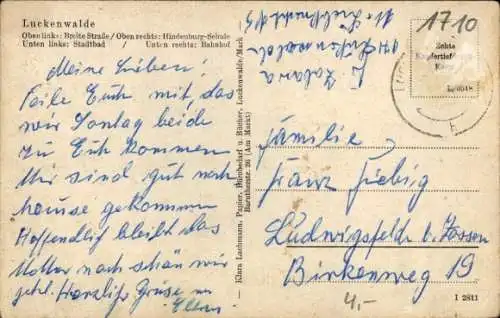 Luckenwalde
Oben links: Breite Straße / Oben rechts: Hindenburg-Schule
Unten links: Stadtbad / Unten rechts: Bahnhof
Meine Lieben!
Teile Euch mit, das
wir Sontag beide
zu Euch kommen
Wir sind gut nach
hause gekommen
Hoffendlig bleibt das
Wetter noch schön wir
Herzliche Grüße
Eltern
Klara Lachmann, Papier, Bürobedarf u. Bücher, Luckenwalde/Mark
Baruther str. 26 (Am Markt)
Luckenwalde
1710
Echte
Kupfertiefdruck
Karte
Familie
Franz Fiebig
Ludwigsfelde b. Zossen
Birkenweg 19
4,-
I 2811